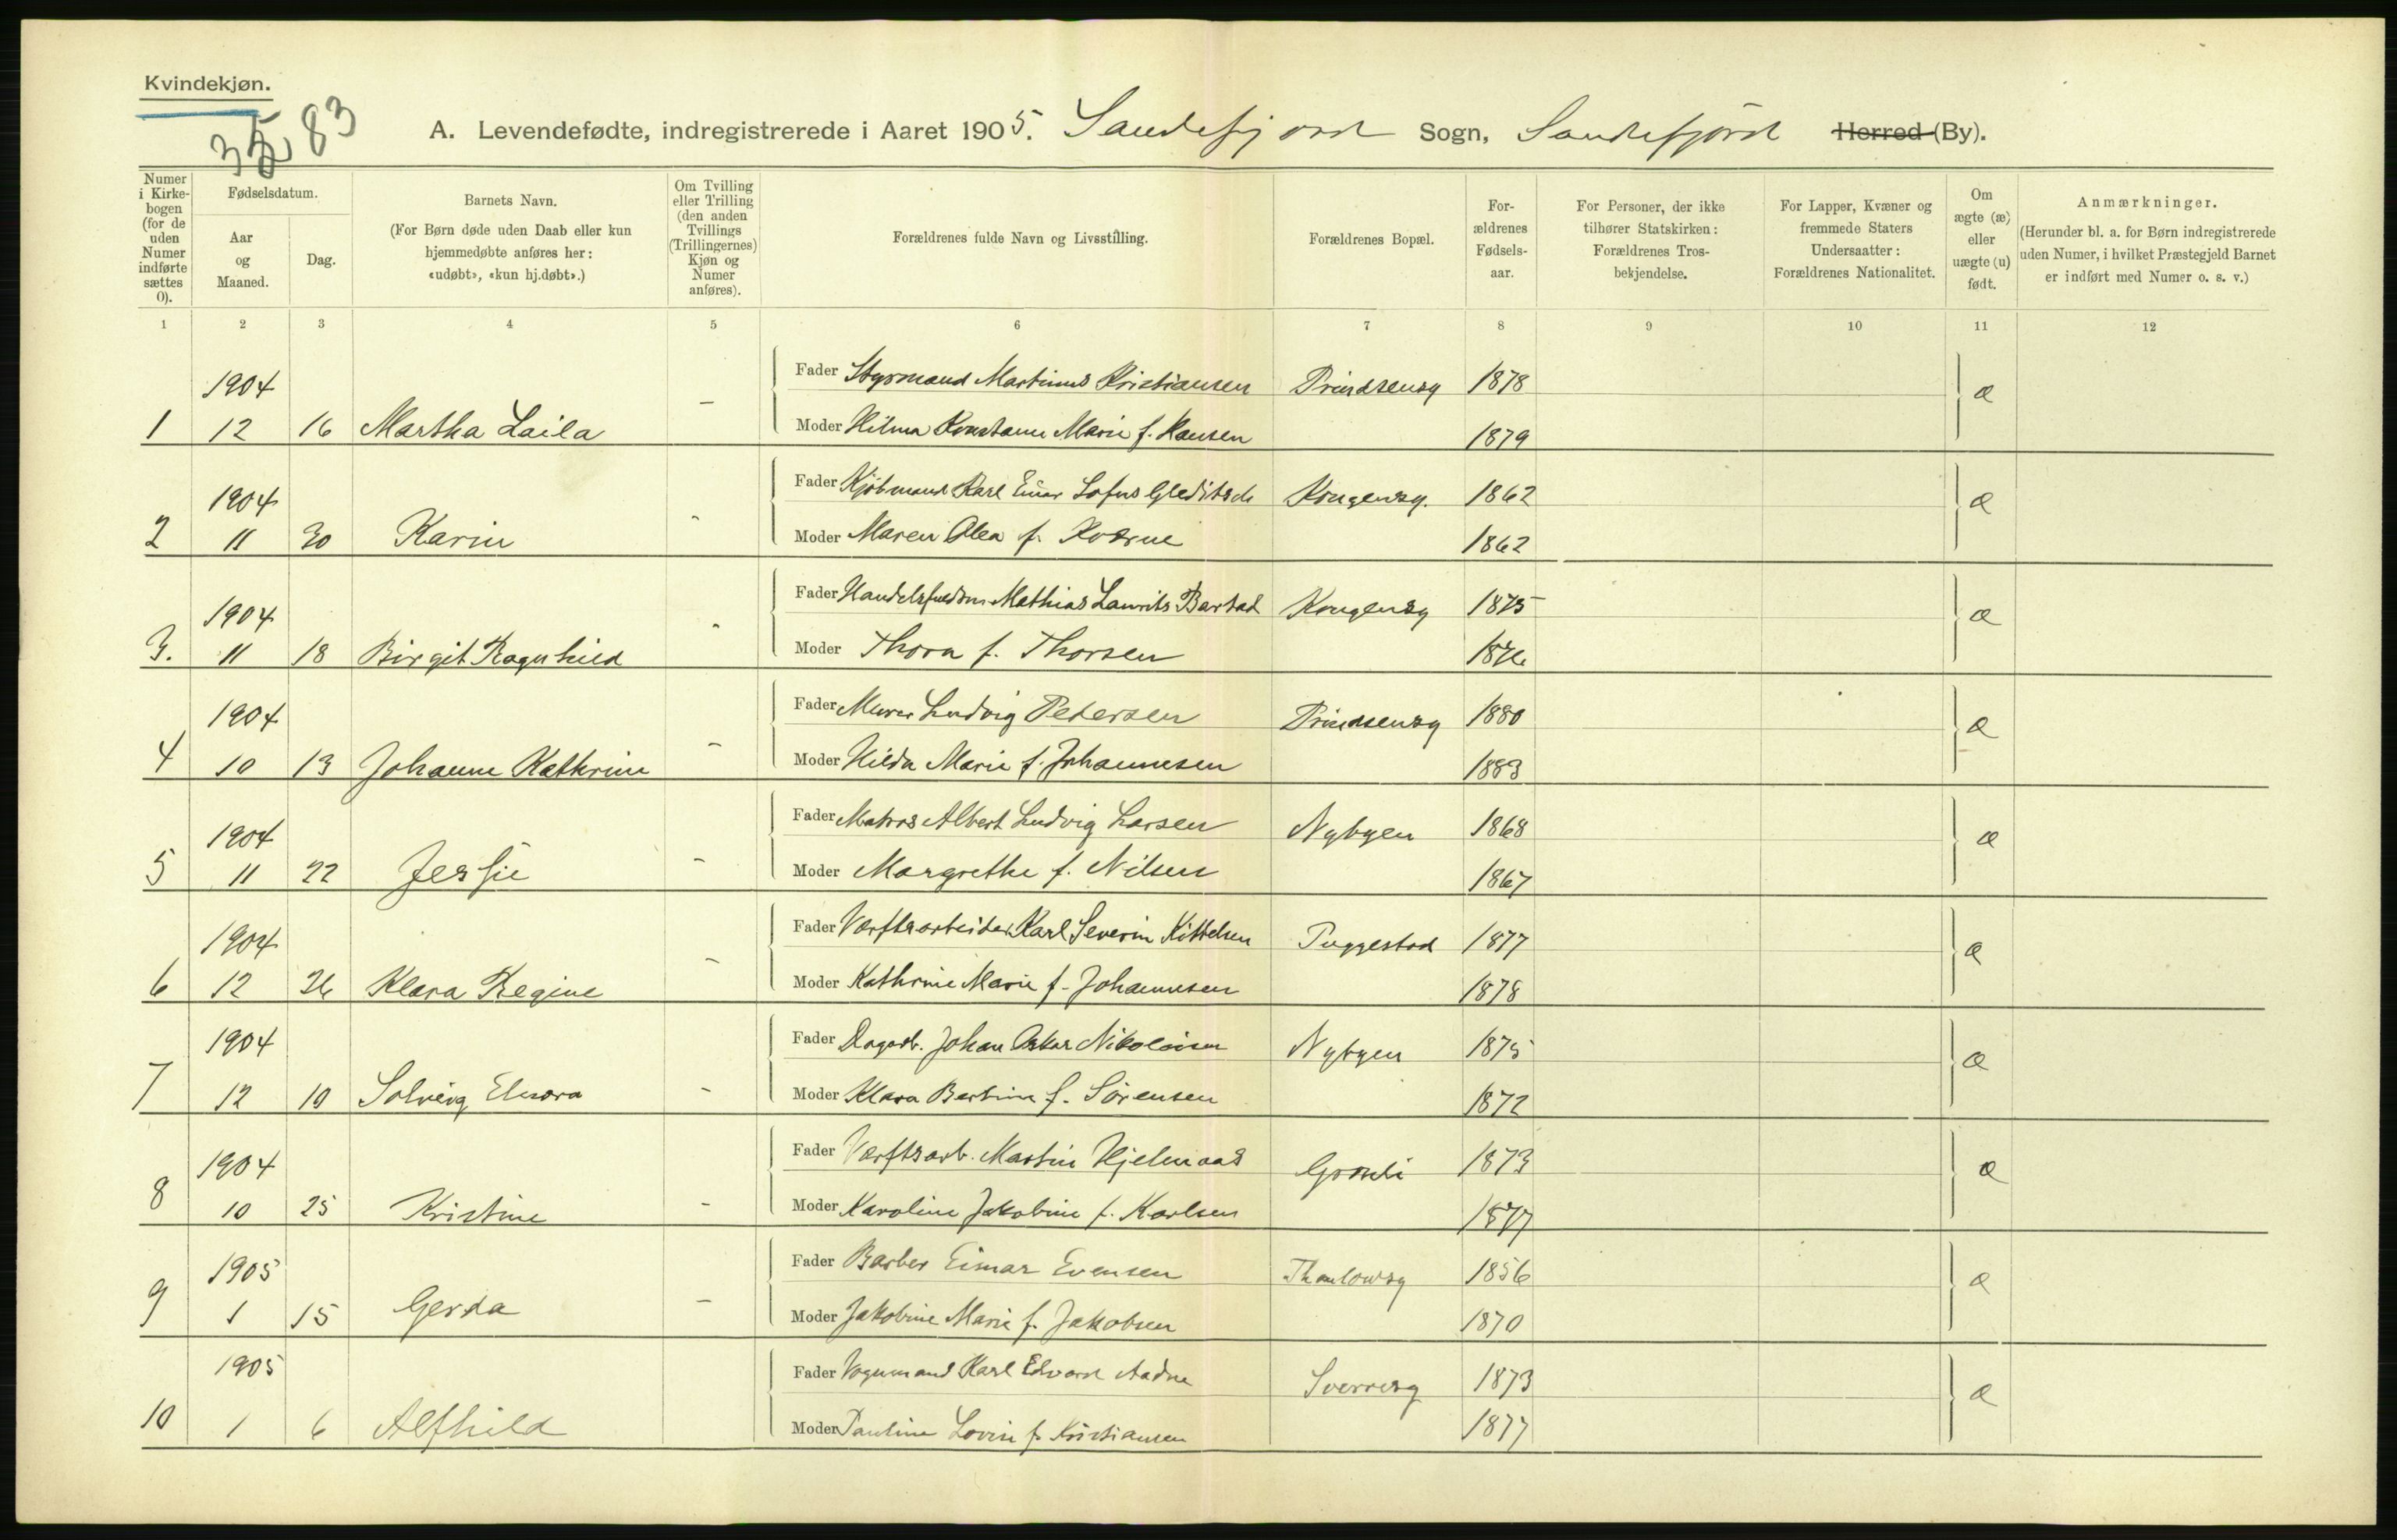 Kvindekjøn.
83
A. Levendefødte, indregistrerede i Aaret 1905. Sandefjord Sogn, Sandefjord Herred (By).
Numer i Kirkebogen (for de uden Numer indførte sættes 0).
Fødselsdatum.
Aar og Maaned.
Dag.
Barnets Navn.
(For Børn døde uden Daab eller kun hjemmedøbte anføres her: «udøbt», «kun hj.døbt».)
Om Tvilling eller Trilling (den anden Tvillings (Trillingernes) Kjøn og Numer anføres).
Forældrenes fulde Navn og Livsstilling.
Forældrenes Bopæl.
Forældrenes Fødselsaar.
For Personer, der ikke tilhører Statskirken: Forældrenes Trosbekjendelse.
For Lapper, Kvæner og fremmede Staters Undersaatter: Forældrenes Nationalitet.
Om ægte (æ) eller uægte (u) født.
Anmærkninger.
(Herunder bl. a. for Børn indregistrerede uden Numer, i hvilket Præstegjeld Barnet er indført med Numer o. s. v.)
1 2 3 4 5 6 7 8 9 10 11 12
1904 Fader Styrmand Martinus Kristiansen Prindsensg 1878 æ
1 12 16 Martha Laila - Moder Hilma Konstanse Marie f. Hansen 1879
1904 Fader Kjøbmand Karl Einar Sofus Gleditsch Kongensg. 1862 æ
2 11 30 Karin - Moder Maren Alea f. Kværne 1862
1904 Fader Mathias Laurits Barstad Kongensg 1875 æ
3. 11 18 Birgit Ragnhild - Moder Thora f. Thorsen 1876
1904 Fader Murer Ludvig Petersen Prindsensg 1880 æ
4 10 13 Johanne Kathrine - Moder Hilda Marie f. Johannesen 1883
1904 Fader Matros Albert Ludvig Larsen Nybyen 1868 æ
5 11 22 Jessie - Moder Margrethe f. Nilsen 1867
1904 Fader Værftsarbeider Karl Severin Kittelsen Puggestad 1877 æ
6 12 26 Klara Regine - Moder Kathrine Marie f. Johannesen 1878
1904 Fader Dagarb. Johan Oskar Nikolaisen Nybyen 1875 æ
7 12 10 Solveig Elnora - Moder Klara Bertine f. Sörensen 1872
1904 Fader Værftsarb. Martin Hjelmaas Grønli 1873 æ
8 10 25 Kristine - Moder Karoline Jakobine f. Karlsen 1877
1905 Fader Barber Eimar Evensen Thaulowsg 1856 æ
9 1 15 Gerda - Moder Jakobine Marie f. Jakobsen 1870
1905 Fader Vognmand Karl Edvard Aadne Sverresg 1873 æ
10 1 6 Alfhild Moder Pauline Lovise f. Kristiansen 1877